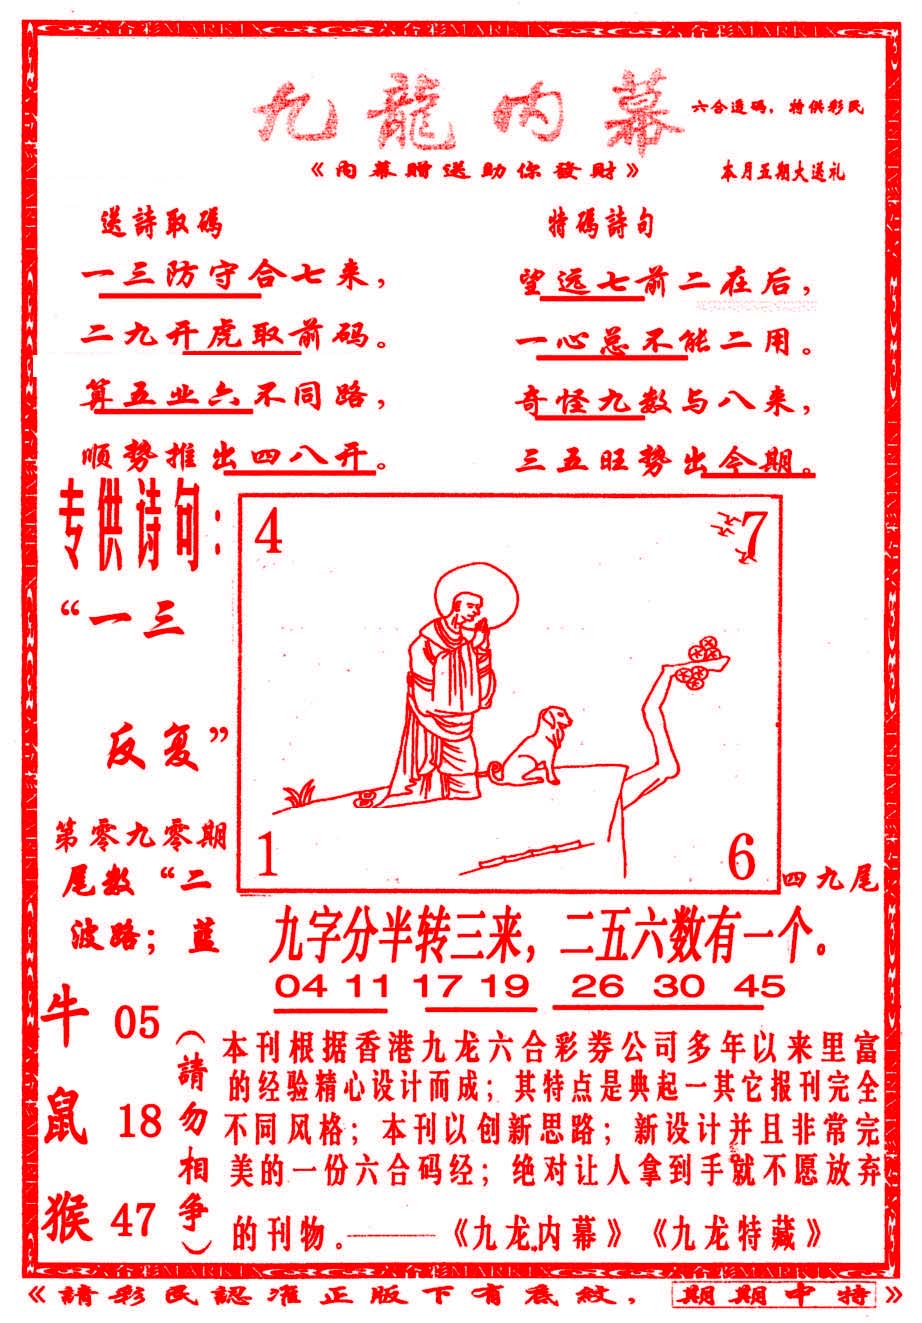 九龍内幕
六合透码，特供彩民
《内幕赠送助你發財》
本月五期大送礼
送詩取碼
一三防守合七来，
二九开虎取前码。
算五业六不同路，
顺势推出四八开。
特碼詩句
望远七前二在后，
一心总不能二用。
奇怪九数与八来，
三五旺势出今期。
专供诗句：
“一三
反复”
第零九零期
尾数“二
波路；蓝
4
7
1
6
四九尾
九字分半转三来，二五六数有一个。
04 11 17 19 26 30 45
牛 05
鼠 18
猴 47
（請勿相争）
本刊根据香港九龙六合彩券公司多年以来里富
的经验精心设计而成；其特点是典起一其它报刊完全
不同风格；本刊以创新思路；新设计并且非常完
美的一份六合码经；绝对让人拿到手就不愿放弃
的刊物。——《九龙内幕》《九龙特藏》
《請彩民認准正版下有底紋，期期中特》